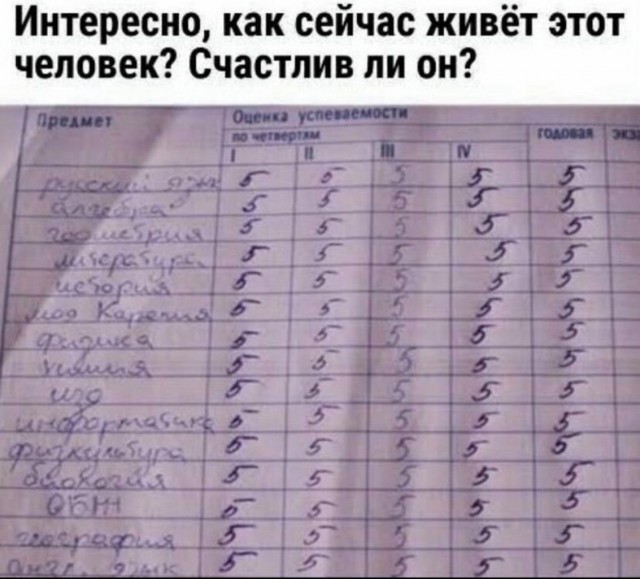 Интересно, как сейчас живёт этот
человек? Счастлив ли он?
Предмет Оценка успеваемости
по четвертям годовая экз
I II III IV
русский язык 5 5 5 5 5
алгебра 5 5 5 5 5
геометрия 5 5 5 5 5
литература 5 5 5 5 5
история 5 5 5 5 5
моя Карелия 5 5 5 5 5
физика 5 5 5 5 5
химия 5 5 5 5 5
изо 5 5 5 5 5
информатика 5 5 5 5 5
физкультура 5 5 5 5 5
биология 5 5 5 5 5
ОБЖ 5 5 5 5 5
география 5 5 5 5 5
англ. язык 5 5 5 5 5